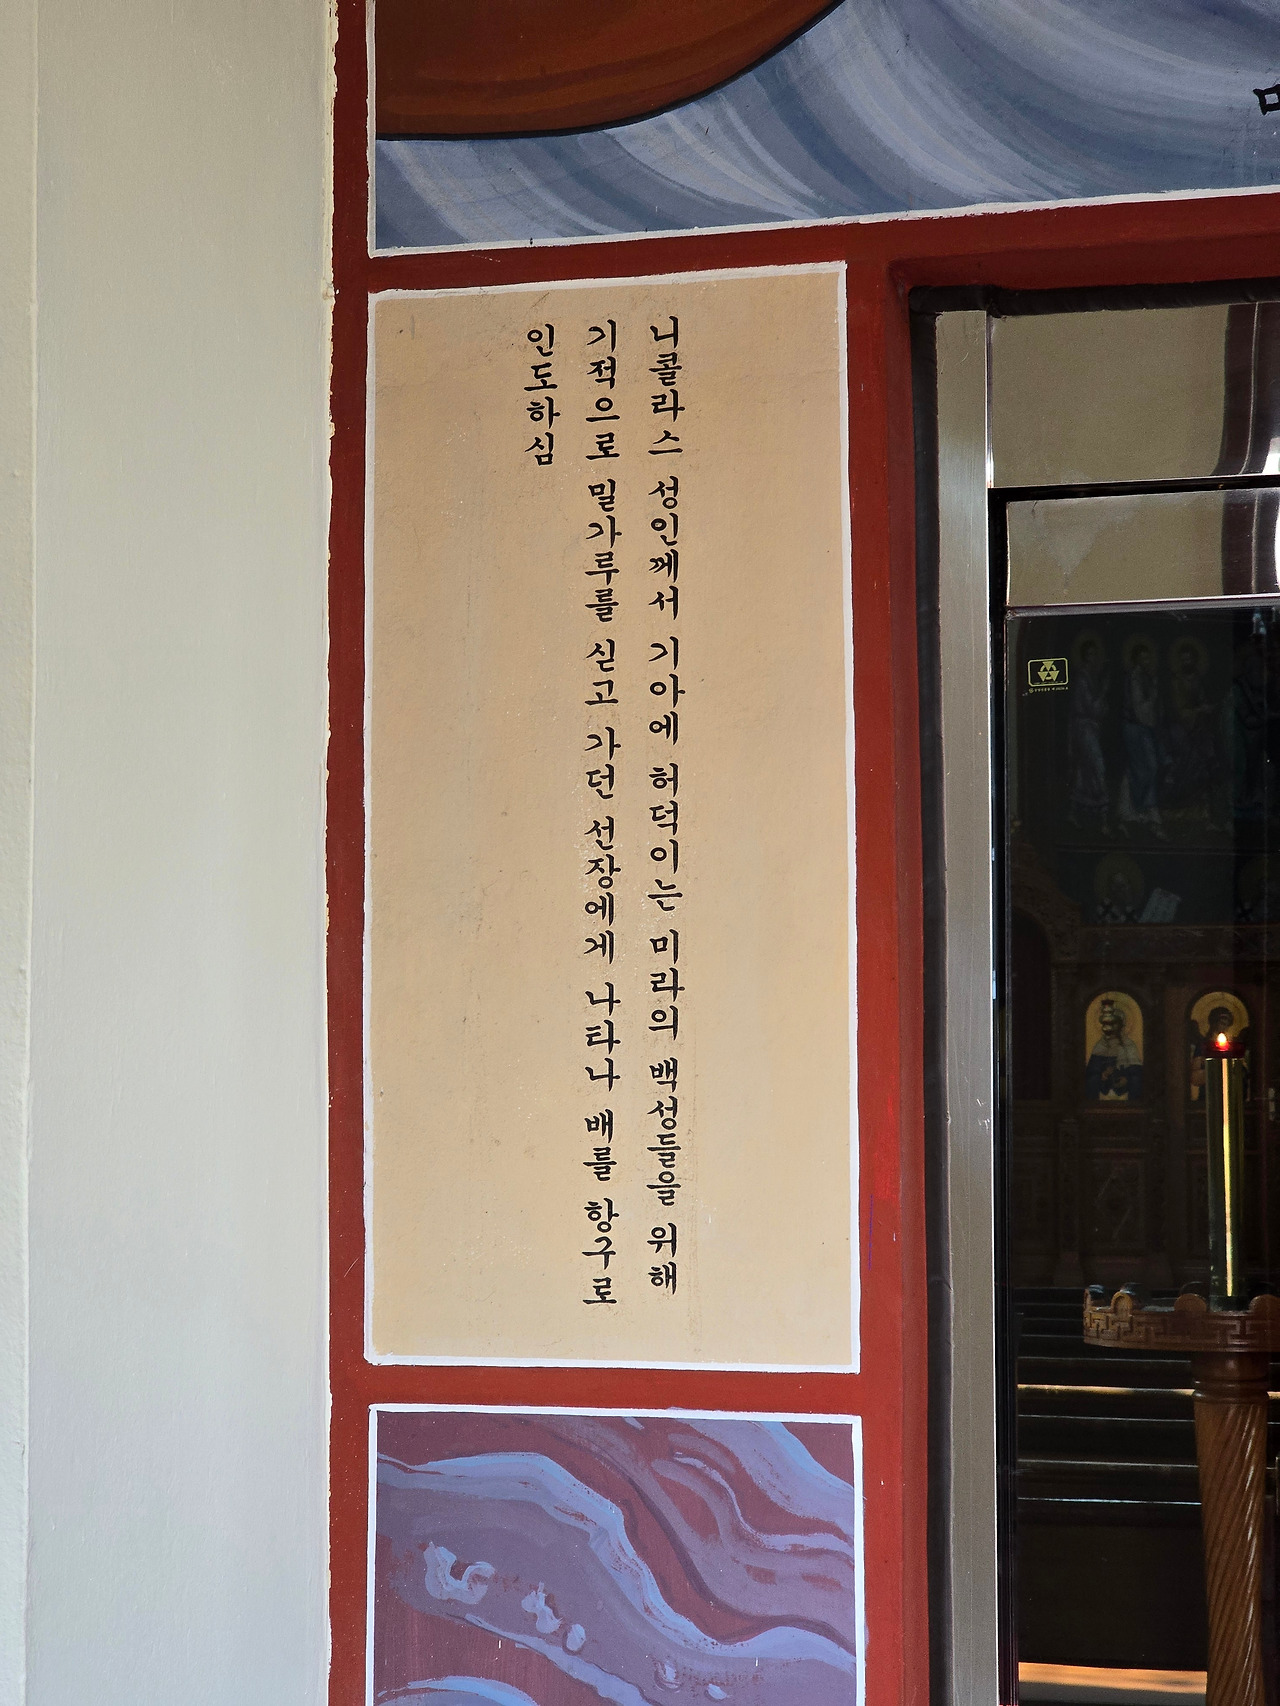 니콜라스 성인께서 기아에 허덕이는 미라의 백성들을 위해
기적으로 밀가루를 싣고 가던 선장에게 나타나 배를 항구로
인도하심